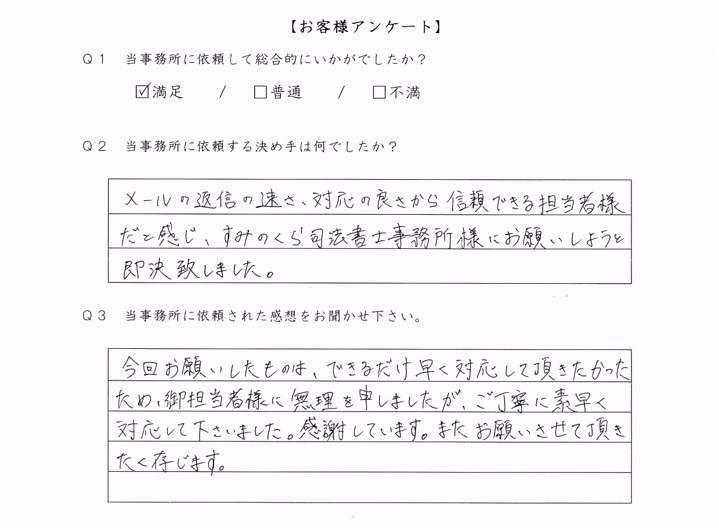 【お客様アンケート】
Q1 当事務所に依頼して総合的にいかがでしたか?
☑満足 / □普通 / □不満
Q2 当事務所に依頼する決め手は何でしたか?
メールの返信の速さ、対応の良さから信頼できる担当者様
だと感じ、すみのくら司法書士事務所様にお願いしようと
即決致しました。
Q3 当事務所に依頼された感想をお聞かせ下さい。
今回お願いしたものは、できるだけ早く対応して頂きたかった
ため、御担当者様に無理を申しましたが、ご丁寧に素早く
対応して下さいました。感謝しています。またお願いさせて頂き
たく存じます。